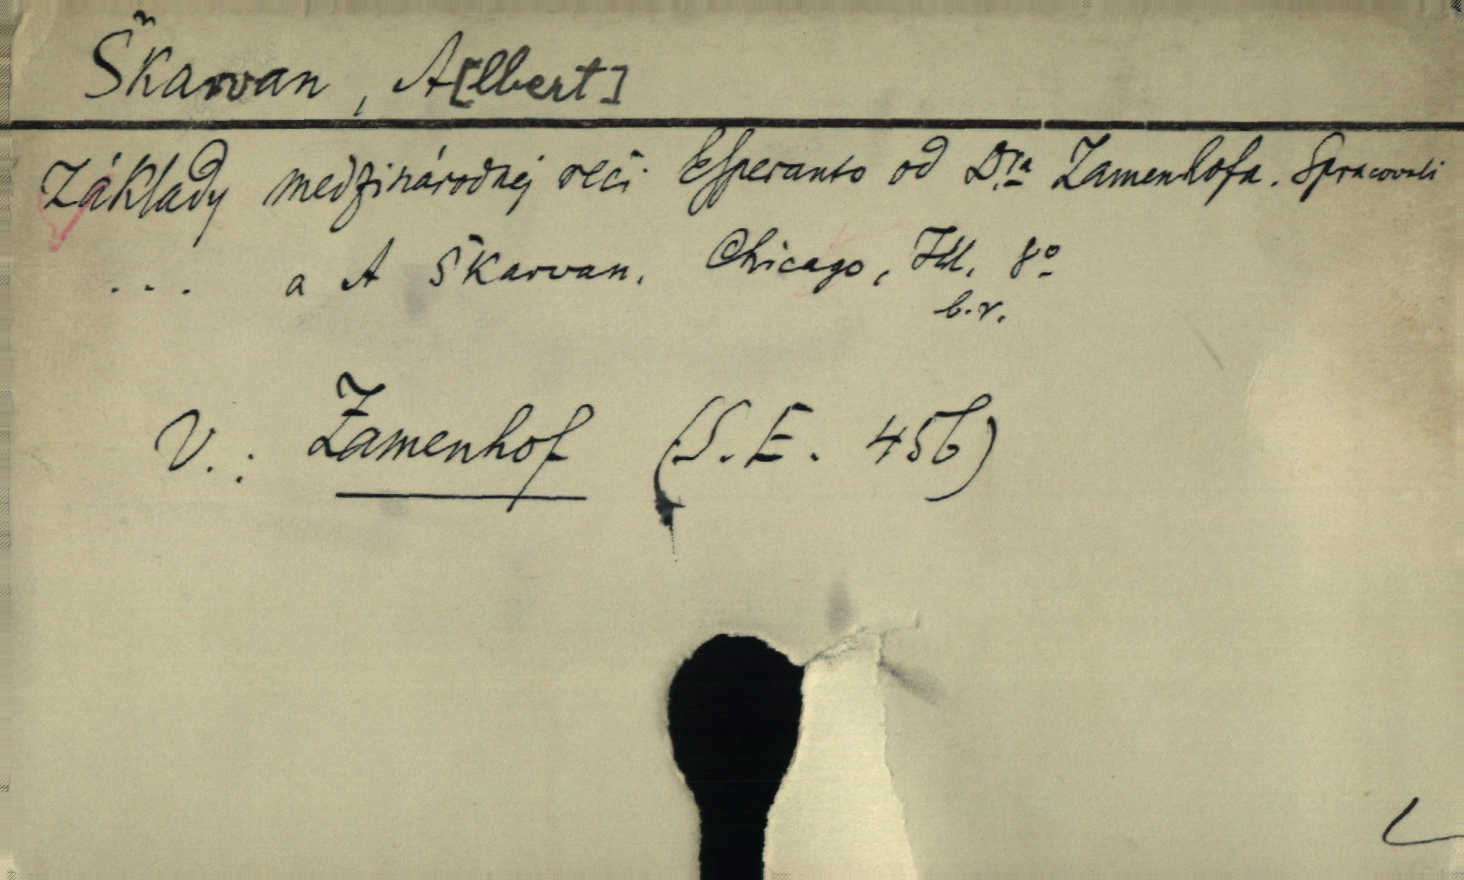 Škarvan, A[lbert]
Základy medzinárodnej reči Esperanto od Dra Zamenhofa. Spracovali
... a A Škarvan. Chicago, Ill. 8º
b.r.
V.: Zamenhof (S.E. 456)